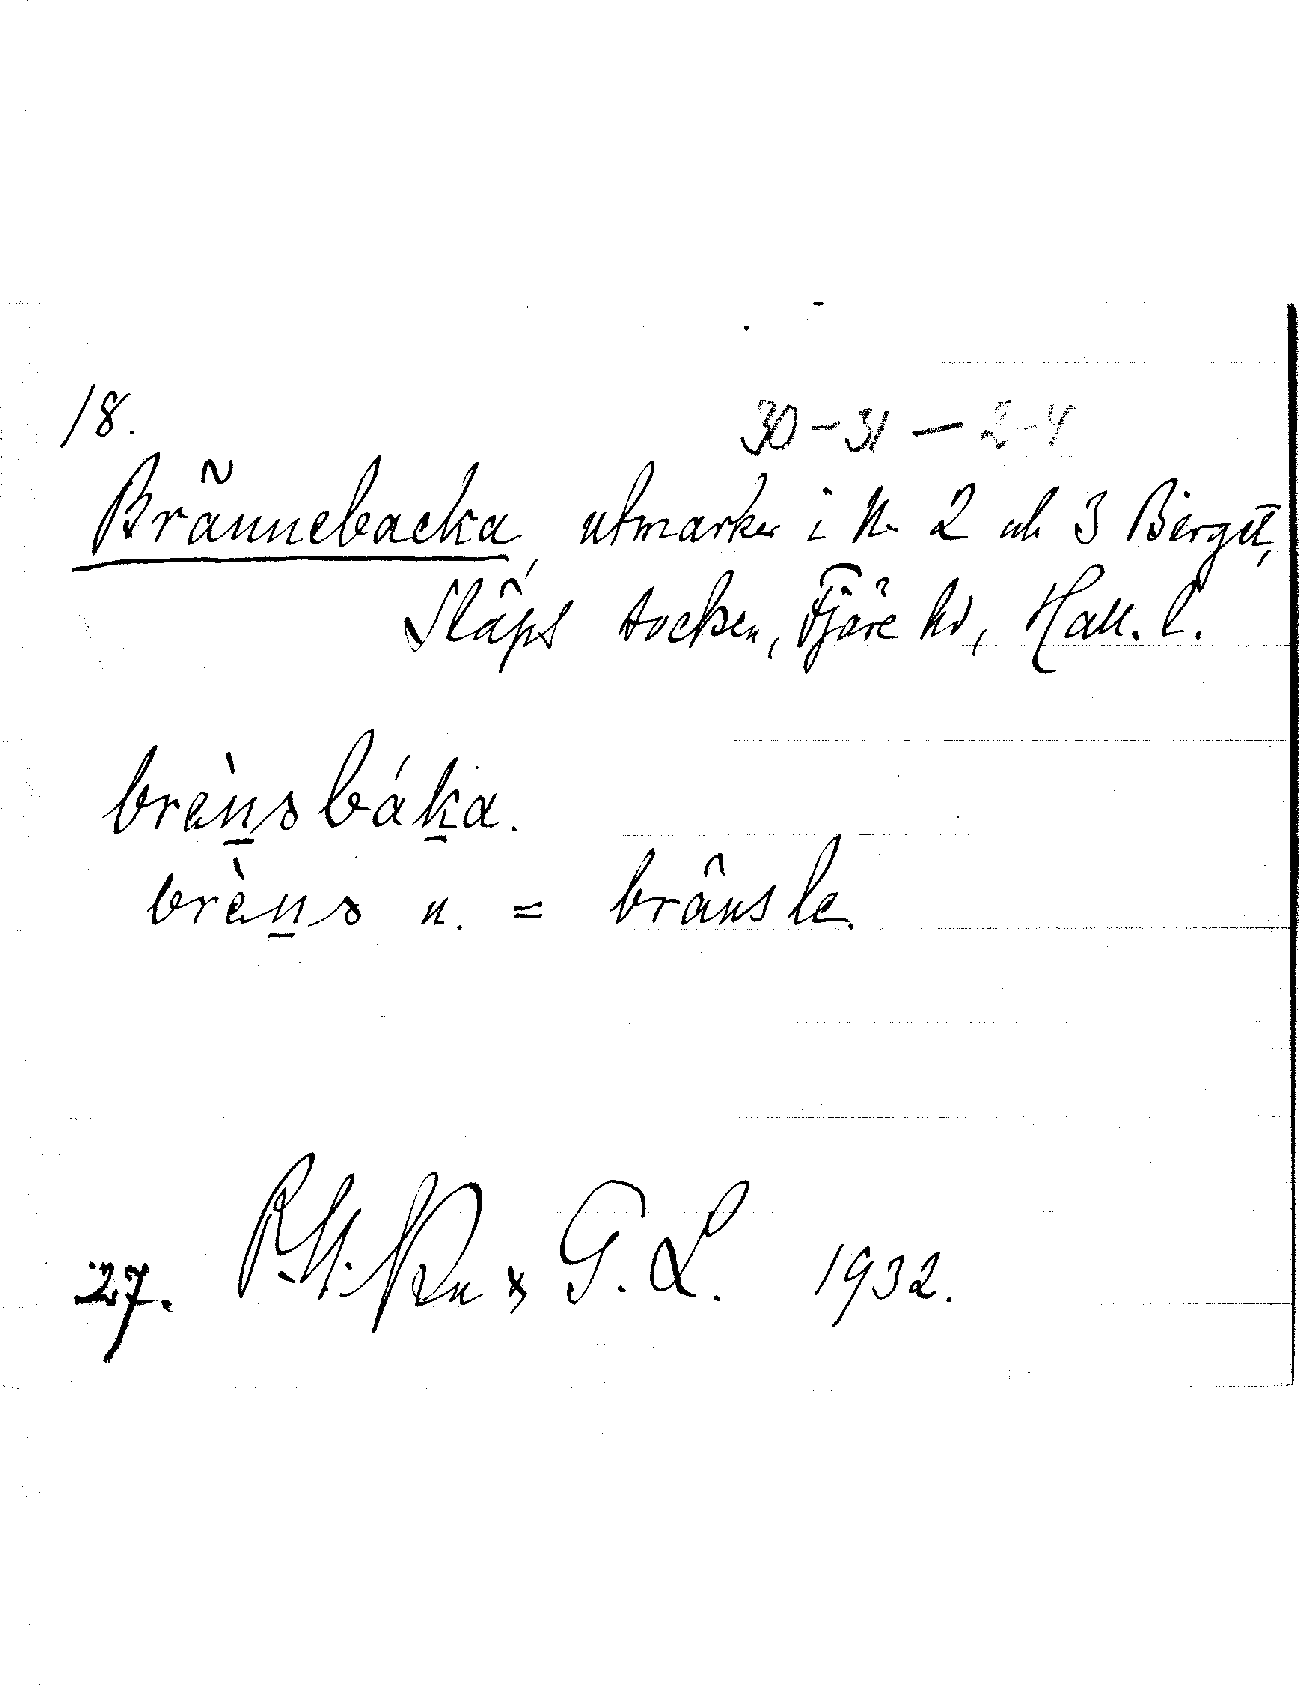 18.
30-31 — 2-4
Brännebacka, utmarker i N. 2 och 3 Berget,
Släps socken, Fjäre hd, Hall. l.
brèn̲sbák̲a.
brèn̲s n. = bränsle.
27. G. L. 1932.